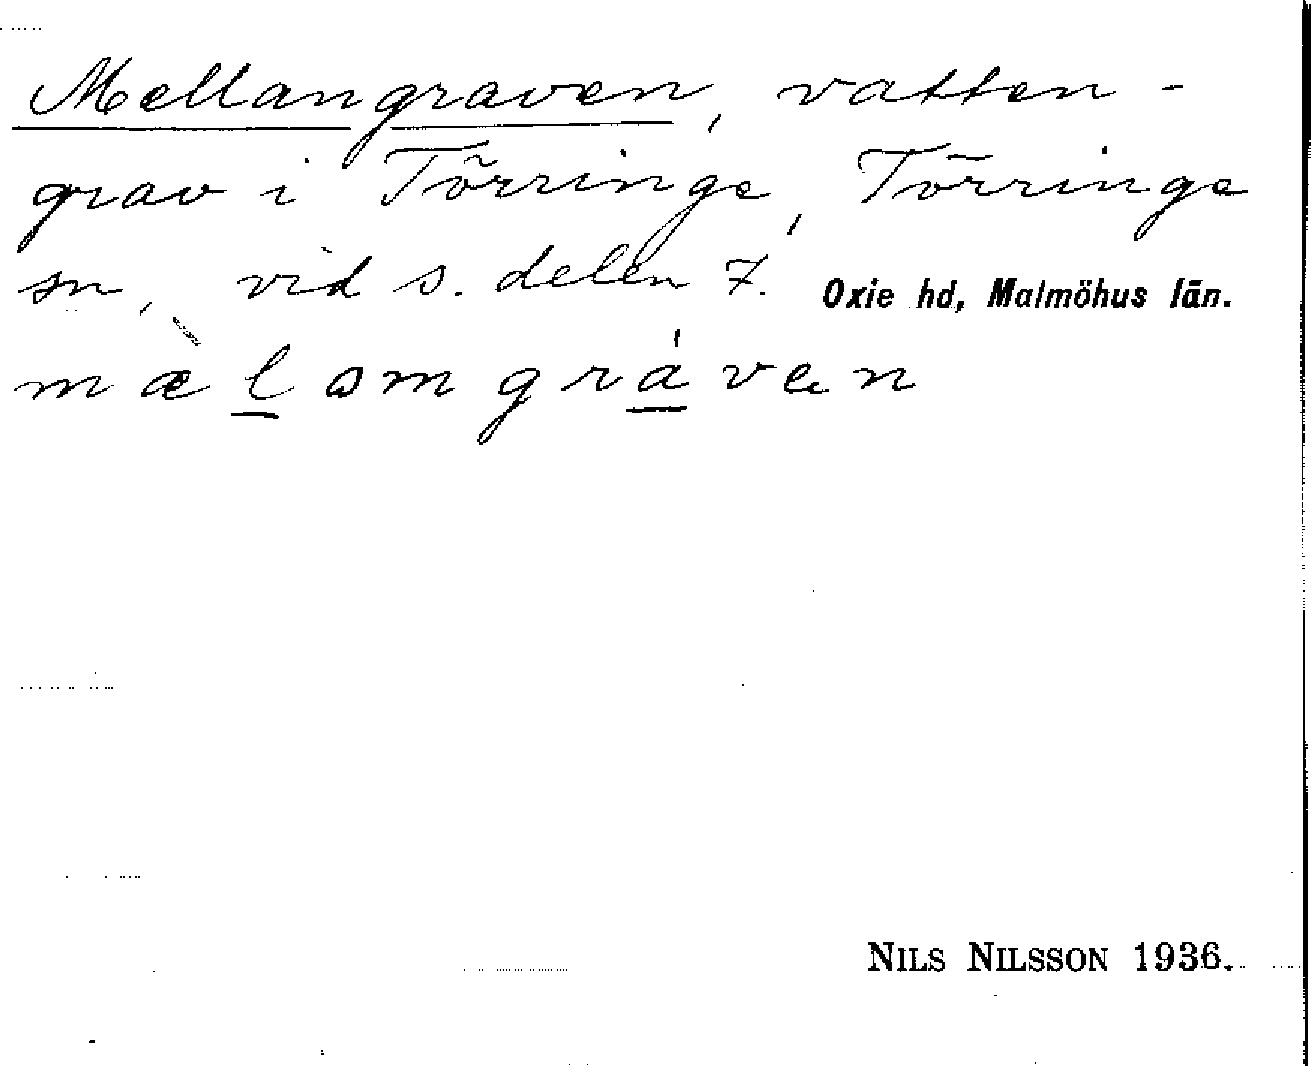 Mellangraven, vatten-
grav i Törringe, Törringe
sn, vid s. delen 7. Oxie hd, Malmöhus län.
mælamgráven
NILS NILSSON 1936.